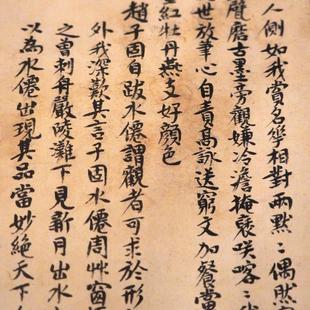 人側如我賞名華相對兩默〻偶然
甓磨古墨旁觀嫌冷澹掩裦咲喀〻
世放筆心自責高詠送窮文加餐當
紅牡丹燕支好顏色
趙子固自跋水僊謂觀者可求於形
外我深歎其言子固水僊周艸窗
之曾刺舟嚴陵灘下見新月出水
以為水僊出現其品當妙絶天下